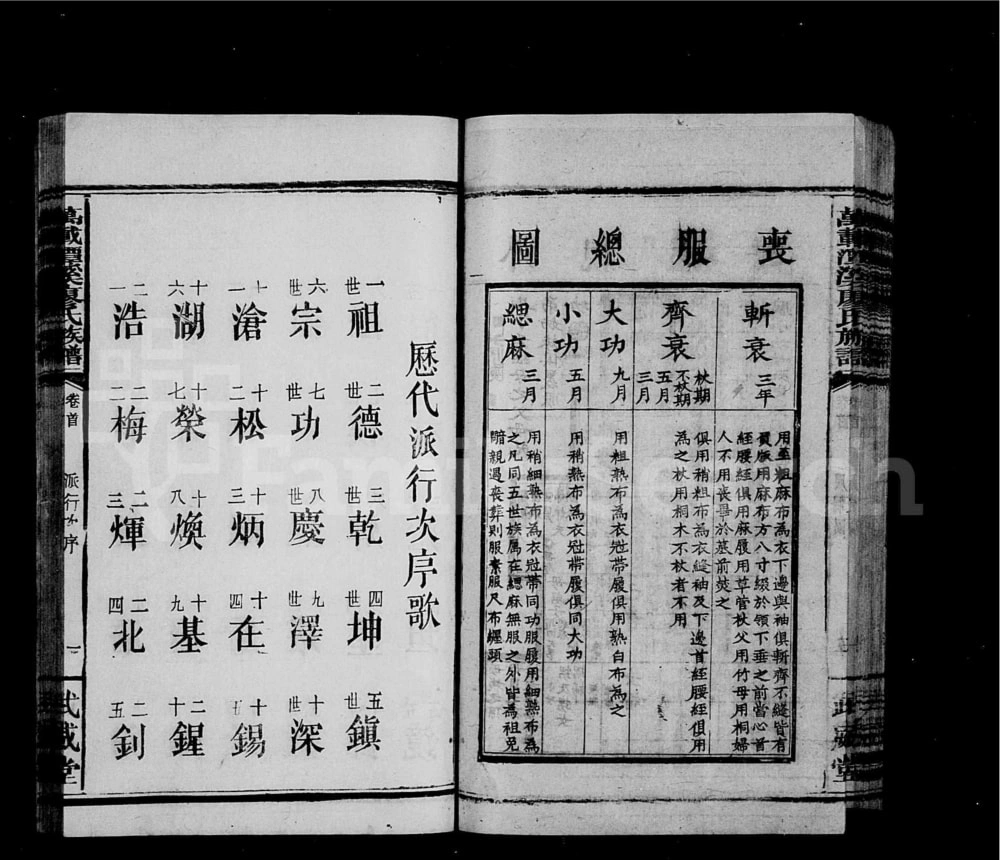 喪服總圖
斬衰 三年
用至粗麻布為衣下邊與袖俱斬齊不縫皆有
負版用麻布方八寸綴於領下垂之前當心首
絰腰絰俱用麻履用草菅杖父用竹母用桐婦
人不用喪畢於墓前焚之
齊衰 杖期 不杖期 五月 三月
俱用稍粗布為衣縫袖及下邊首絰腰絰俱用
為之杖用桐木不杖者不用
大功 九月
用粗熟布為衣冠帶履俱用熟白布為之
小功 五月
用稍熟布為衣冠帶履俱同大功
緦麻 三月
用稍細熟布為衣冠帶同功服履用細熟布為
之凡同五世族属在緦麻無服之外皆為袒免
親遇喪葬則服素服尺布纏頭
歷代派行次序歌
一世祖 二世德 三世乾 四世坤 五世鎮
六世宗 七世功 八世慶 九世澤 十世深
十一滄 十二松 十三炳 十四在 十五錫
十六湖 十七榮 十八煥 十九基 二十鍟
二一浩 二二梅 二三煇 二四北 二五釗
萬載潭溪廖氏族譜
卷首
派行次序
一
武威堂